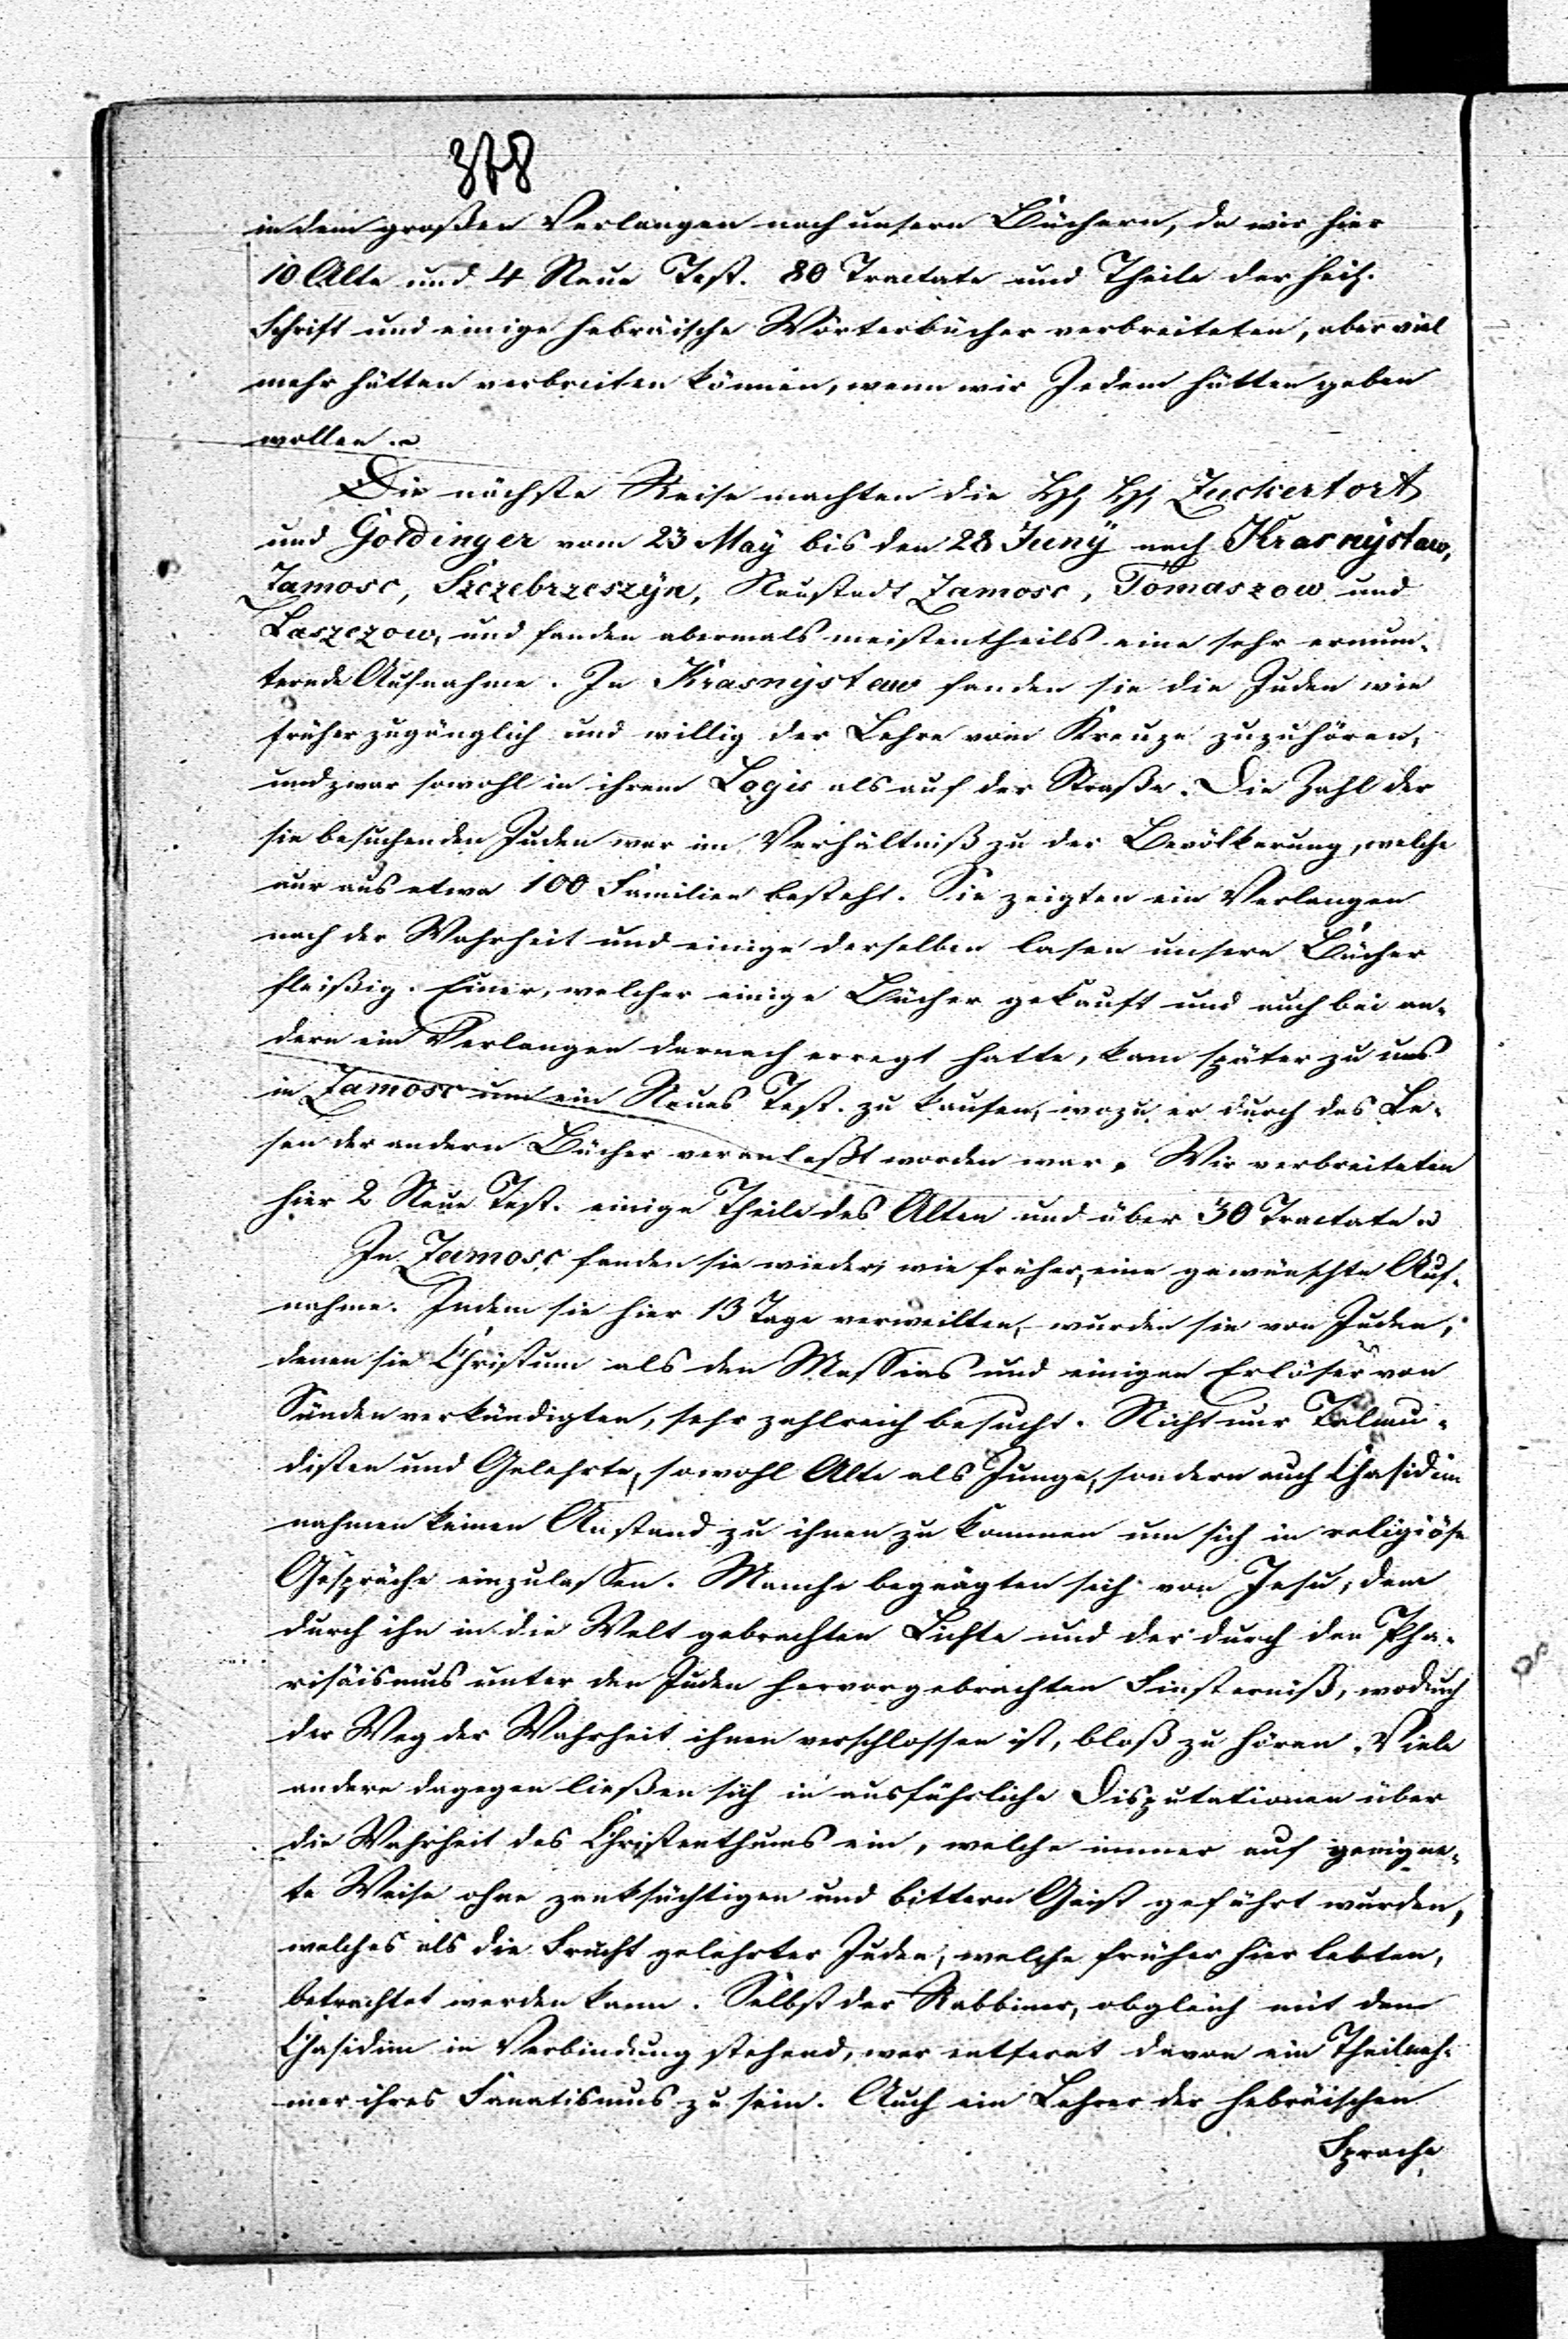 378
in dem großen Verlangen nach unsern Büchern, da wir hier
10 Alte und 4 Neue Test. 80 Tractate und Theile der heil.
Schrift und einige hebräische Wörterbücher verbreiteten, aber viel
mehr hätten verbreiten können, wenn wir Jedem hätten geben
wollen.
Die nächste Reise machten die HH. HH. Zuckertort
und Goldinger vom 23 May bis den 28 Juny nach Krasnystaw,
Zamosc, Szczebrzeszyn, Neustadt Zamosc, Tomaszow und
Laszczow, und fanden abermals meistentheils eine sehr ermun-
ternde Aufnahme. In Krasnystaw fanden sie die Juden wie
früher zugänglich und willig der Lehre vom Kreuze zuzuhören,
und zwar sowohl in ihrem Logis als auf der Straße. Die Zahl der
sie besuchenden Juden war im Verhältniß zu der Bevölkerung, welche
nur aus etwa 100 Familien besteht. Sie zeigten ein Verlangen
nach der Wahrheit und einige derselben lasen unsere Bücher
fleißig. Einer, welcher einige Bücher gekauft und auch bei an-
dern ein Verlangen darnach erregt hatte, kam später zu uns
in Zamosc um ein Neues Test. zu kaufen, wozu er durch das Le-
sen der andern Bücher veranlaßt worden war. Wir verbreiteten
hier 2 Neue Test. einige Theile des Alten und über 30 Tractate.
In Zamosc fanden sie wieder, wie früher, eine gewünschte Auf-
nahme. Indem sie hier 13 Tage verweilten, wurden sie von Juden,
denen sie Christum als den Messias und einigen Erlöser von
Sünden verkündigten, sehr zahlreich besucht. Nicht nur Talmu-
disten und Gelehrte, sowohl Alte als Junge, sondern auch Chasidim
nahmen keinen Anstand zu ihnen zu kommen um sich in religiöse
Gespräche einzulassen. Manche begnügten sich von Jesu, dem
durch ihn in die Welt gebrachten Lichte und der durch den Pha-
risäismus unter den Juden hervorgebrachten Finsterniß, wodurch
der Weg der Wahrheit ihnen verschlossen ist, bloß zu hören. Viele
andere dagegen ließen sich in ausführliche Disputationen über
die Wahrheit des Christenthums ein, welche immer auf geeigne-
te Weise ohne zanksüchtigen und bittern Geist geführt wurden,
welches als die Frucht gelehrter Juden, welche früher hier lebten,
betrachtet werden kann. Selbst der Rabbiner, obgleich mit den
Chasidim in Verbindung stehend, war entfernt davon ein Theilneh-
mer ihres Fanatismus zu sein. Auch ein Lehrer der hebräischen
Sprache